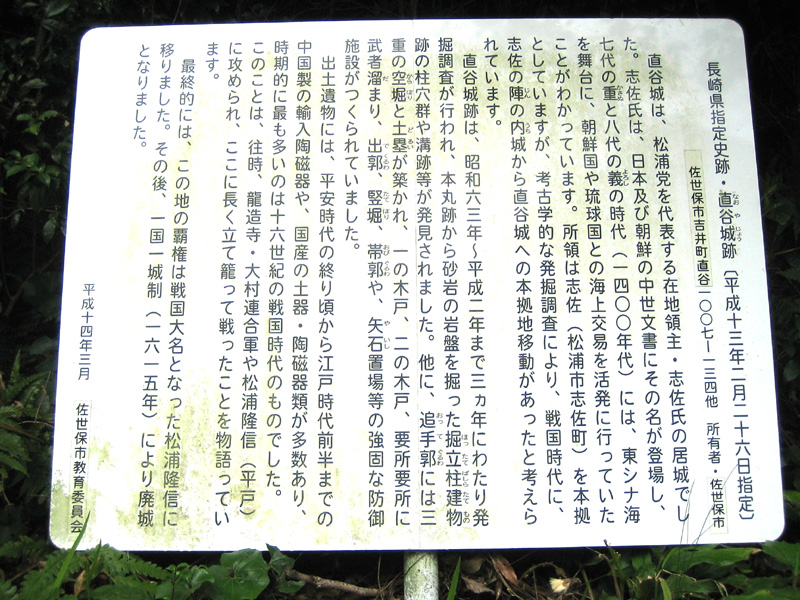 長崎県指定史跡・直谷城跡〔平成十三年二月二十六日指定〕
なおやじょう
佐世保市吉井町直谷一〇〇七ー一三四他 所有者・佐世保市
直谷城は、松浦党を代表する在地領主・志佐氏の居城でし
た。志佐氏は、日本及び朝鮮の中世文書にその名が登場し、
七代の重と八代の義の時代（一四〇〇年代）には、東シナ海
かさね よし
を舞台に、朝鮮国や琉球国との海上交易を活発に行っていた
ことがわかっています。所領は志佐（松浦市志佐町）を本拠
としていますが、考古学的な発掘調査により、戦国時代に、
志佐の陣の内城から直谷城への本拠地移動があったと考えら
じん うち
れています。
直谷城跡は、昭和六三年〜平成二年まで三ヵ年にわたり発
掘調査が行われ、本丸跡から砂岩の岩盤を掘った掘立柱建物
ほったてばしらたてもの
跡の柱穴群や溝跡等が発見されました。他に、追手郭には三
おってぐるわ
重の空堀と土塁が築かれ、一の木戸、二の木戸、要所要所に
からぼり どるい
武者溜まり、出郭、竪堀、帯郭や、矢石置場等の強固な防御
だ でぐるわ たてぼり おびぐるわ やいし
施設がつくられていました。
出土遺物には、平安時代の終り頃から江戸時代前半までの
中国製の輸入陶磁器や、国産の土器・陶磁器類が多数あり、
時期的に最も多いのは十六世紀の戦国時代のものでした。
このことは、往時、龍造寺・大村連合軍や松浦隆信（平戸）
に攻められ、ここに長く立て籠って戦ったことを物語ってい
ます。
最終的には、この地の覇権は戦国大名となった松浦隆信に
移りました。その後、一国一城制（一六一五年）により廃城
となりました。
平成十四年三月 佐世保市教育委員会